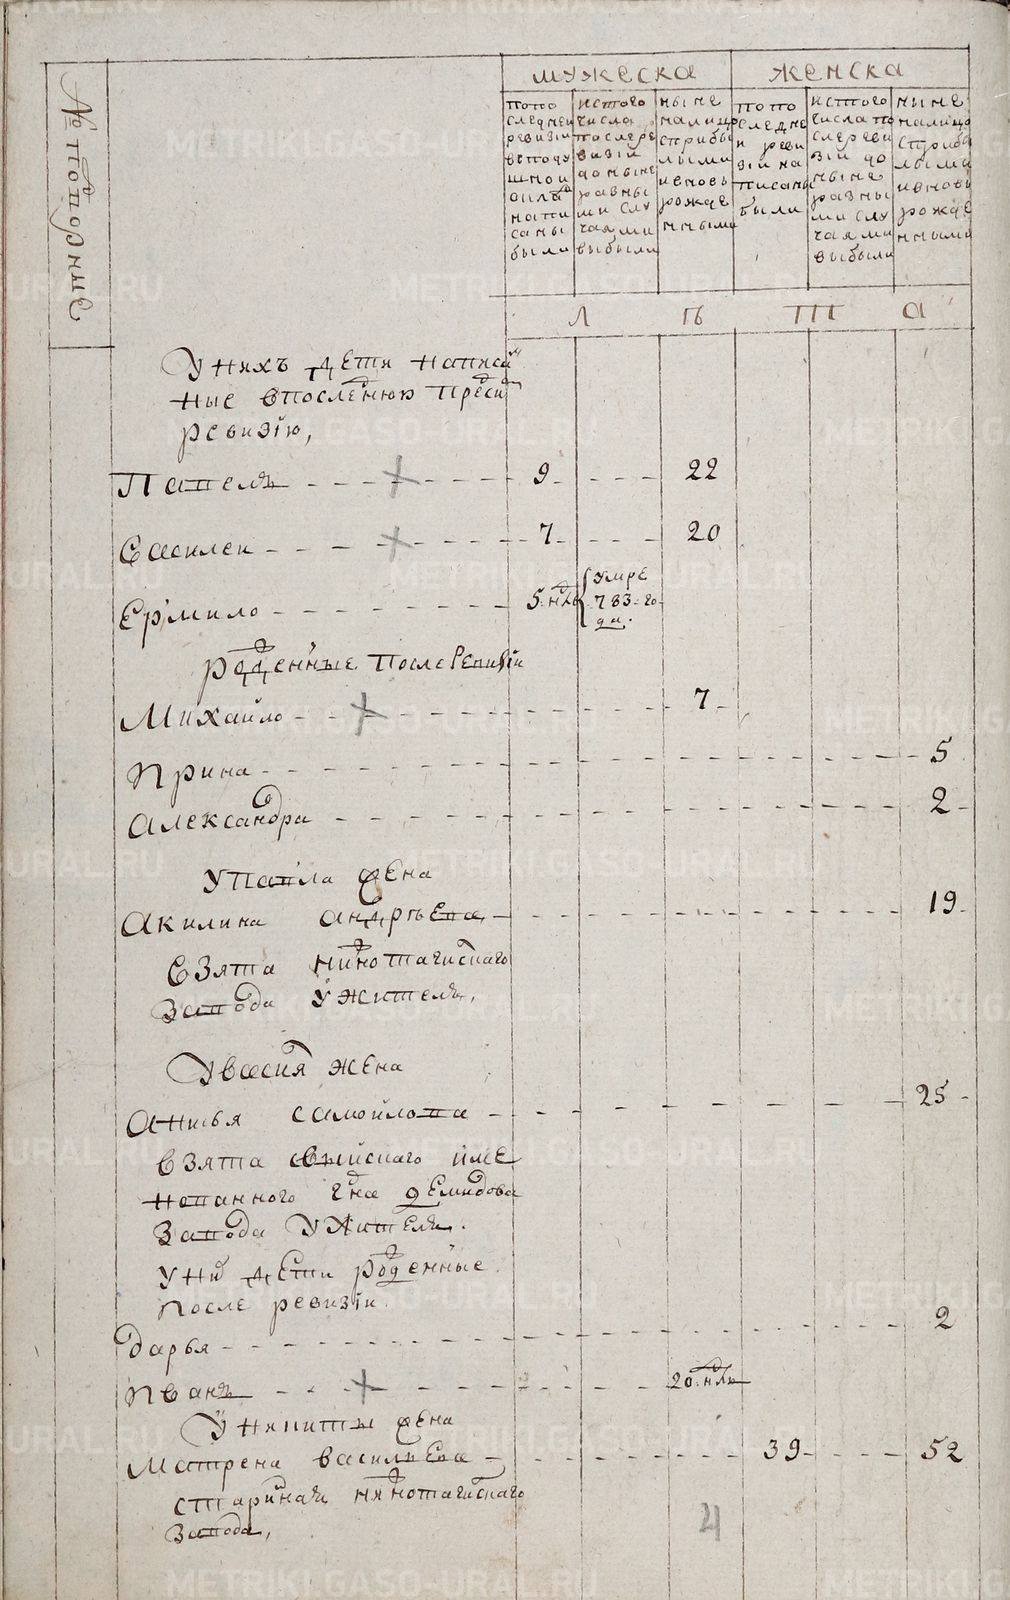 № попорядне
мужеска
женска
попо
следнеи
ревизіи
всподу
шнои
окладъ
напи
саны
были
истого
числа
послере
визіи
доныне
разны
ми слу
чаями
выбыли
ныне
налицо
сприбы
лыми
ивновь
рожде
нными
попо
следне
и реви
зіи на
писаны
были
истого
числа по
слереви
зіи до
ныне
разны
ми слу
чаями
выбыли
ныне
налицо
сприбы
лыми
ивновь
рожде
нными
Л
ѣ
Т
А
У нихъ дѣти написа
ные впоследнюю пред
ревизію,
Павелъ 9 22
Василеи 7 20
Ермило 5 нѣд умре
783 го
да.
рожденные послеревизіи
Михаило 7
Ирина 5
Александра 2
У Павла жена
Акилина андрѣева 19
взята нижнотагилскаго
завода у жителя,
У васил жена
Анисья самоилова 25
взята выйскаго име
нованного гдна демидова
завода у жителя.
У них дети рожденные
после ревизіи
дарья 2
Иванъ 20 нѣд
У никиты жена
Матрена васильева 39 52
старинная нижнотагилскаго
завода,
4
METRIKI.GASO-URAL.RU